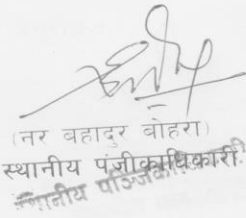 (नर बहादुर बोहरा)
स्थानीय पंजीकाधिकारी
स्थानीय पञ्जिकाधिकारी